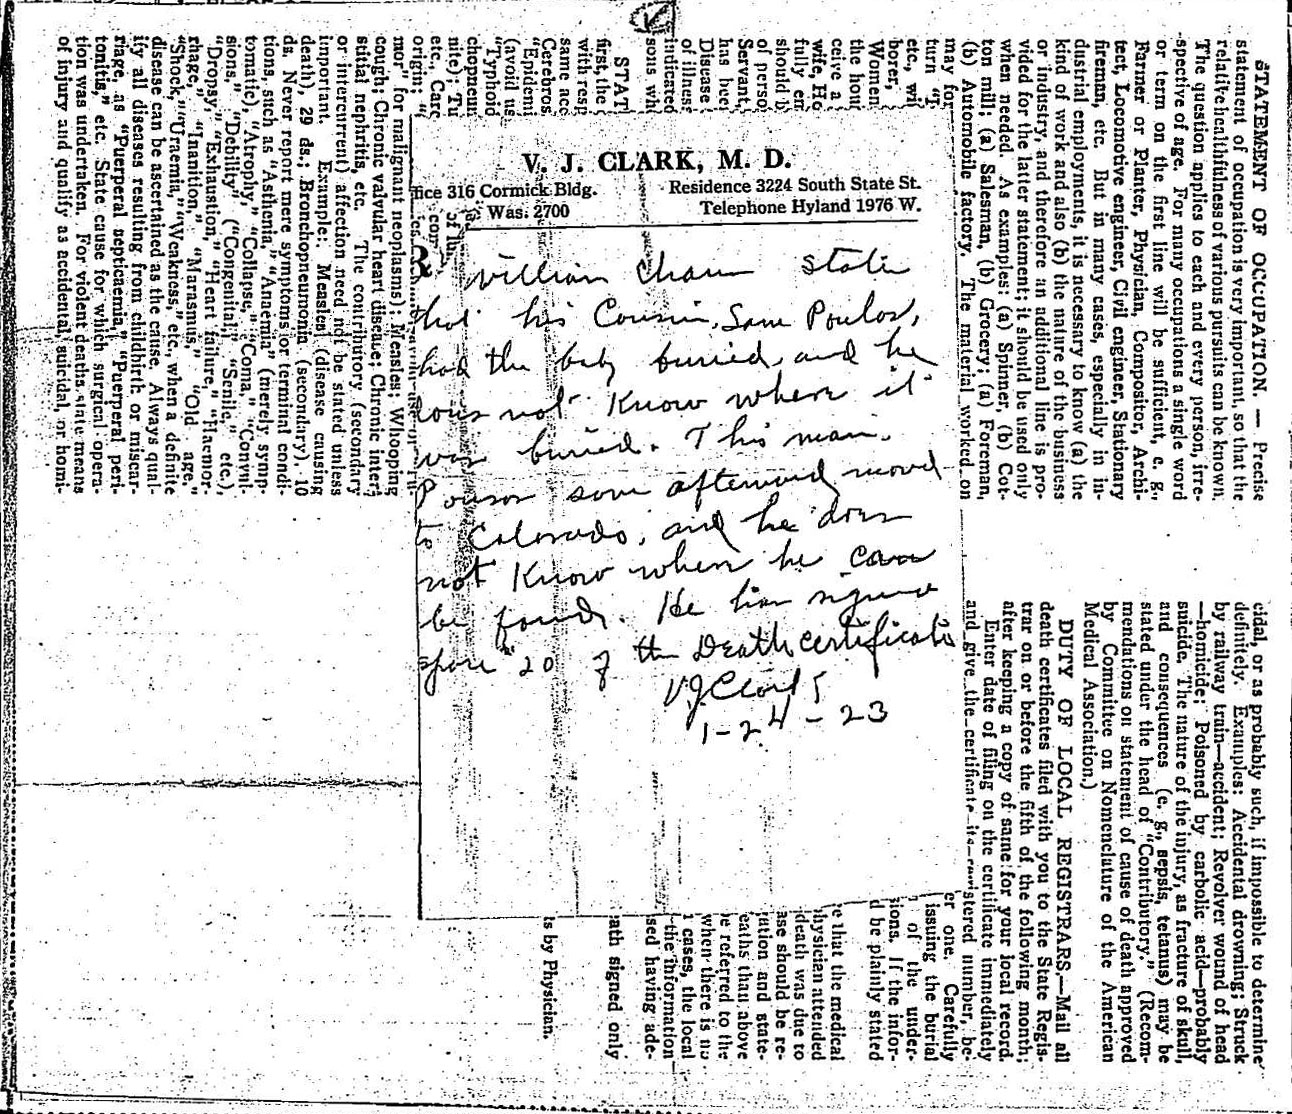 V. J. CLARK, M. D.
fice 316 Cormick Bldg. Residence 3224 South State St.
Was. 2700 Telephone Hyland 1976 W.
William states
that his Cousin, Sam Poulos,
had the baby buried, and he
does not Know where it
was buried. This man.
soon afterward moved
to Colorado, and he does
not Know where he can
be found. He has signed
space 20 of the Death certificate
V J Clark
1-24-23
STATEMENT OF OCCUPATION. — Precise
statement of occupation is very important, so that the
relative healthfulness of various pursuits can be known.
The question applies to each and every person, irre-
spective of age. For many occupations a single word
or term on the first line will be sufficient, e. g.,
Farmer or Planter, Physician, Compositor, Archi-
tect, Locomotive engineer, Civil engineer, Stationary
fireman, etc. But in many cases, especially in in-
dustrial employments, it is necessary to know (a) the
kind of work and also (b) the nature of the business
or industry, and therefore an additional line is pro-
vided for the latter statement; it should be used only
when needed. As examples: (a) Spinner, (b) Cot-
ton mill; (a) Salesman, (b) Grocery; (a) Foreman,
(b) Automobile factory. The material worked on
may for
turn "I
etc., wil
borer,
Women
the hou
ceive a
wife, Ho
fully en
should b
of perso
Servant,
has bee
Disease
of illnes
indicated
sons wh
STAT
first, the
with resp
same acc
Cerebros
"Epidemi
(avoid us
"Typhoid
chopneum
nite); Tu
etc., Carc
origin; "
mor" for malignant neoplasms); Measles; Whooping
cough; Chronic valvular heart disease; Chronic inter-
stitial nephritis, etc. The contributory (secondary
or intercurrent) affection need not be stated unless
important. Example: Measles (disease causing
death), 29 ds.; Bronchopneumonia (secondary), 10
ds. Never report mere symptoms or terminal condi-
tions, such as "Asthenia," "Anaemia" (merely symp-
tomatic), "Atrophy," "Collapse," "Coma," "Convul-
sions," "Debility" ("Congenital," "Senile," etc.),
"Dropsy," "Exhaustion," "Heart failure," "Haemor-
rhage," "Inanition," "Marasmus," "Old age,"
"Shock," "Uraemia," "Weakness," etc., when a definite
disease can be ascertained as the cause. Always qual-
ify all diseases resulting from childbirth or miscar-
riage, as "Puerperal septicaemia," "Puerperal peri-
tonitis," etc. State cause for which surgical opera-
tion was undertaken. For violent deaths state means
of injury and qualify as accidental, suicidal, or homi-
cidal, or as probably such, if impossible to determine
definitely. Examples: Accidental drowning; Struck
by railway train—accident; Revolver wound of head
—homicide; Poisoned by carbolic acid—probably
suicide. The nature of the injury, as fracture of skull,
and consequences (e. g., sepsis, tetanus) may be
stated under the head of "Contributory." (Recom-
mendations on statement of cause of death approved
by Committee on Nomenclature of the American
Medical Association.)
DUTY OF LOCAL REGISTRARS—Mail all
death certificates filed with you to the State Regis-
trar on or before the fifth of the following month;
after keeping a copy of same for your local record.
Enter date of filing on the certificate immediately
and give the certificate its registered number, be-
er one. Carefully
issuing the burial
of the under-
sions. If the infor-
d be plainly stated
e that the medical
hysician attended
death was due to
ase should be re-
ation and state-
eaths than above
be referred to the
when there is no
cases, the local
the information
sed having ade-
ath signed only
ts by Physician.